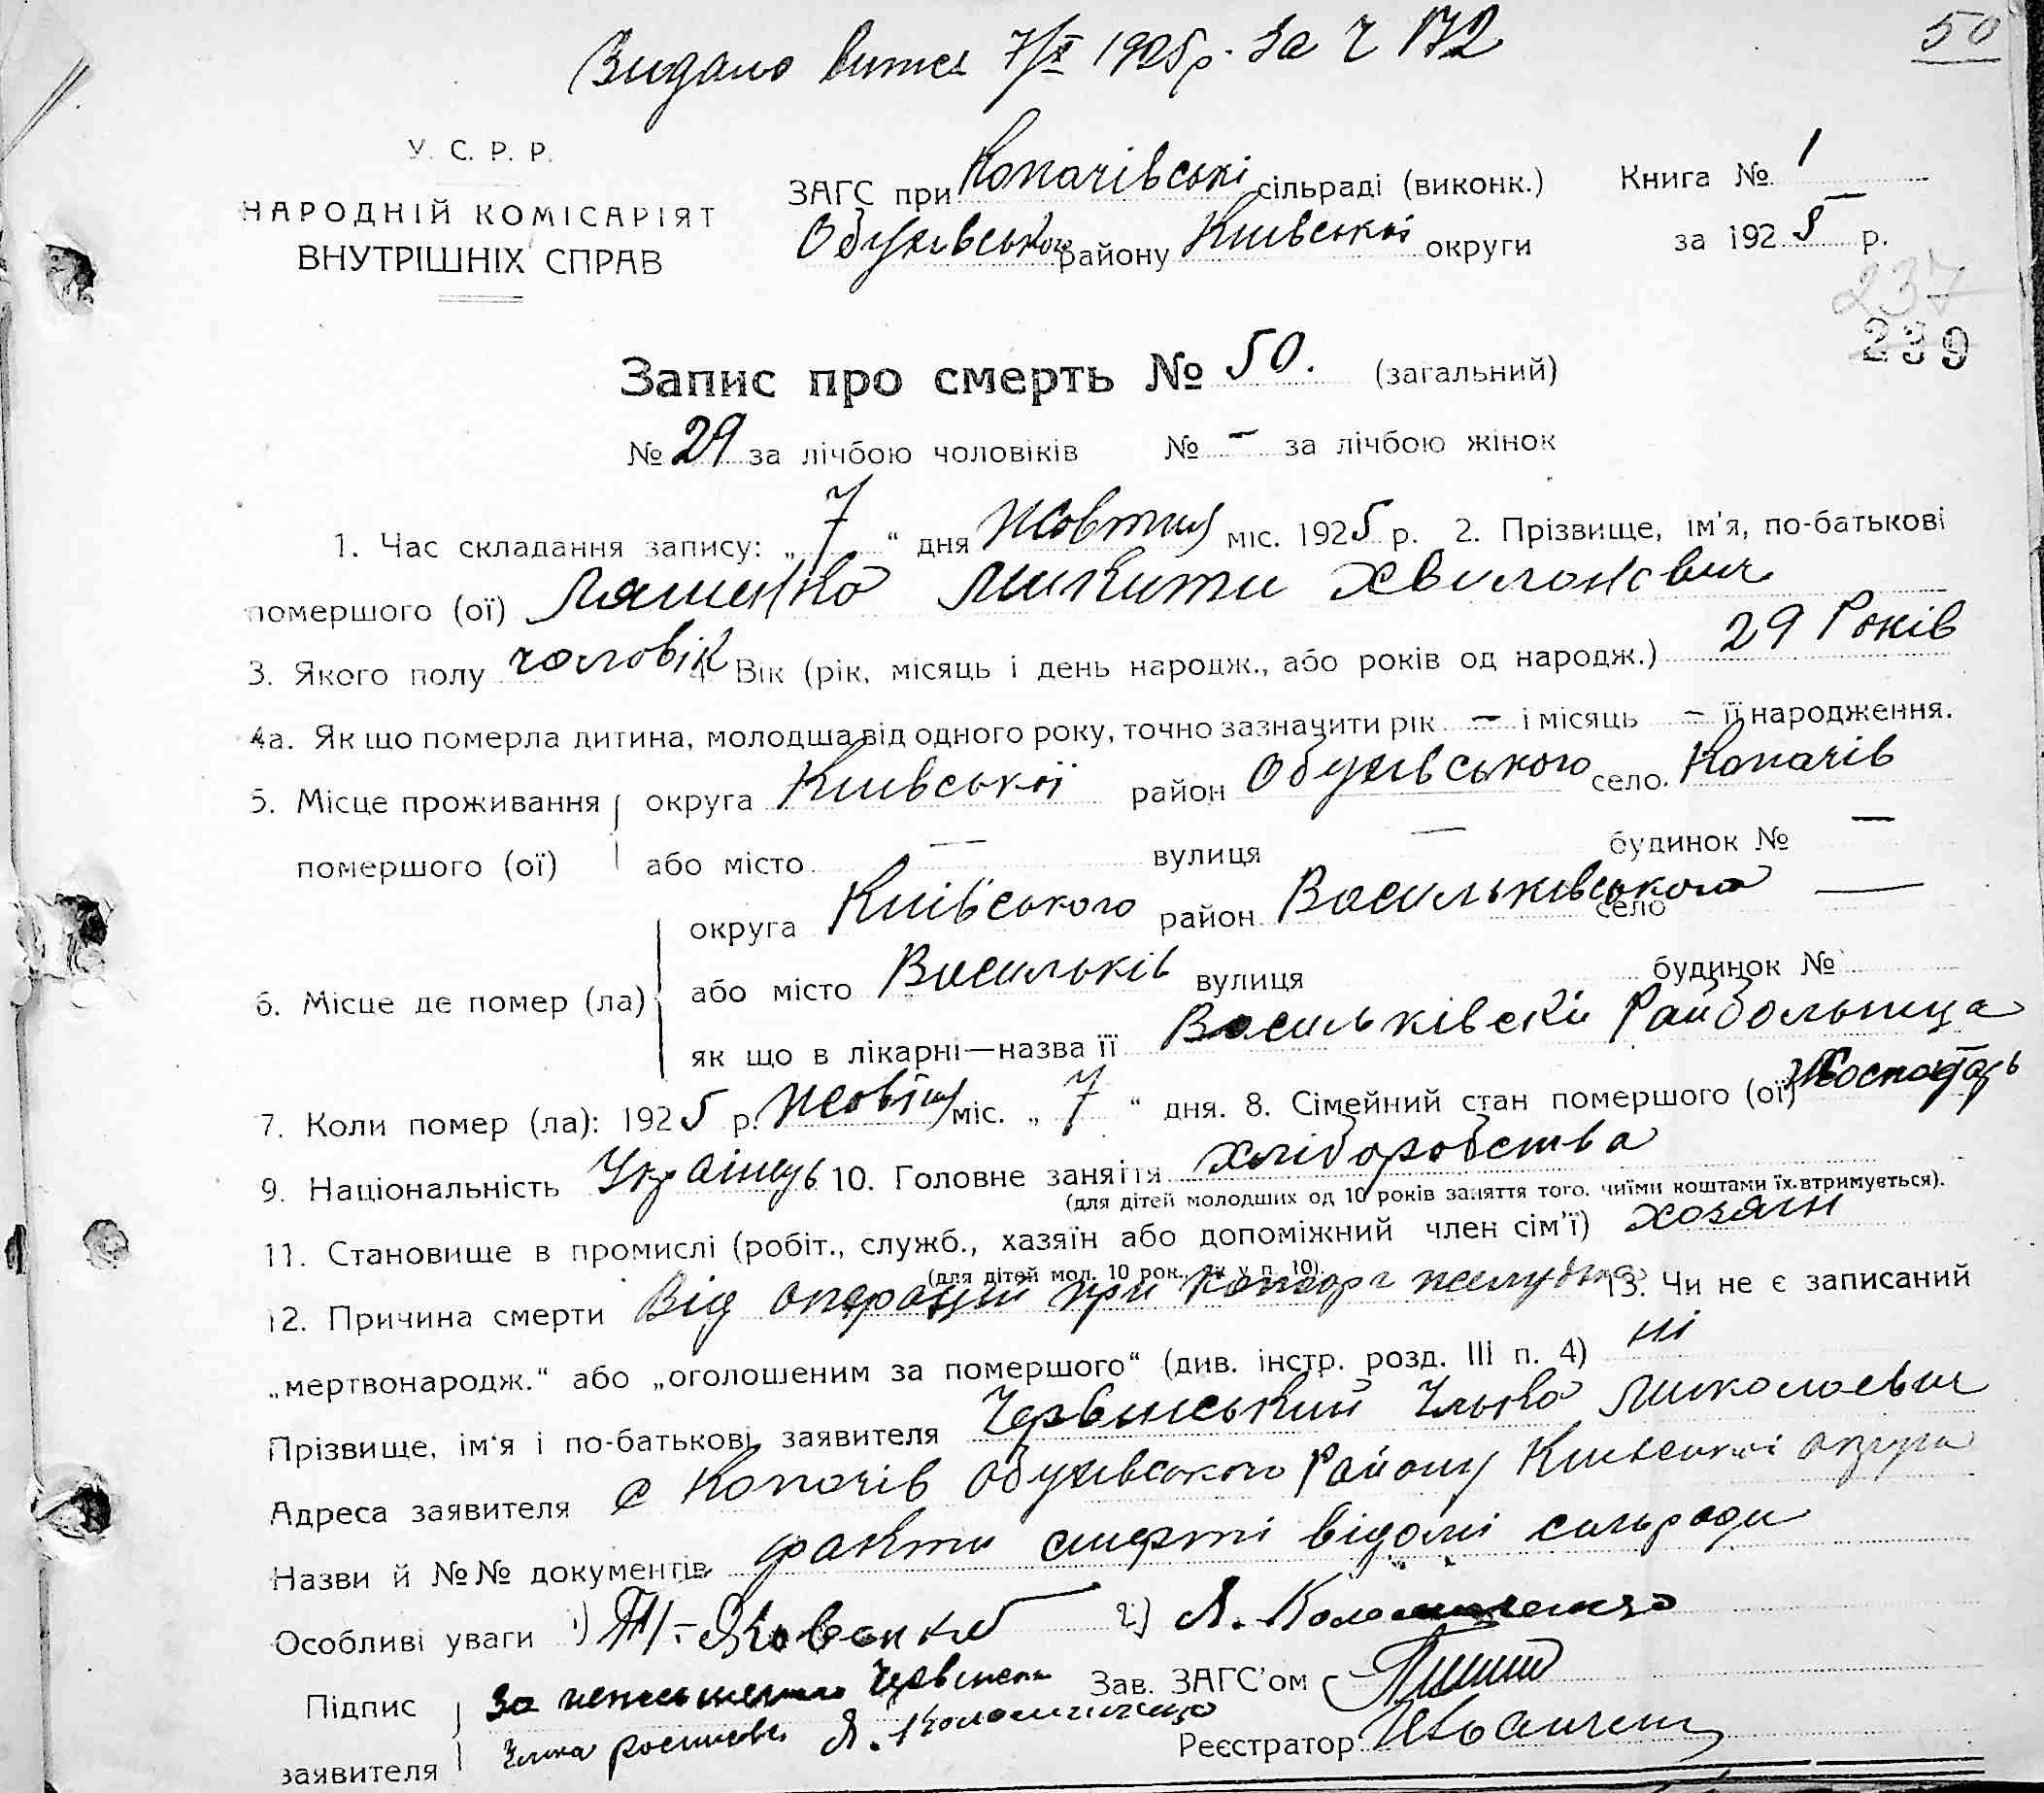 Видано витяг 7/X 1925р. За Ч 172
50
У. С. Р. Р.
НАРОДНІЙ КОМІСАРІЯТ
ВНУТРІШНІХ СПРАВ
ЗАГС при Копачівські сільраді (виконк.)
Обухівського району Київської округи
Книга № 1
за 1925 р.
237
239
Запис про смерть № 50. (загальний)
№ 29 за лічбою чоловіків № — за лічбою жінок
1. Час складання запису: „ 7 “ дня Жовтня міс. 1925 р. 2. Прізвище, ім'я, по-батькові
помершого (ої) Ляшенко Микити Хвилонович
3. Якого полу чоловік 4. Вік (рік, місяць і день народж., або років од народж.) 29 Років
4а. Як що померла дитина, молодша від одного року, точно зазначити рік — і місяць — її народження.
5. Місце проживання округа Київської район Обухівського село. Копачів
помершого (ої) або місто — вулиця — будинок № —
округа Київського район Васильківського село —
6. Місце де помер (ла) або місто Васильків вулиця будинок №
як що в лікарні—назва її Васильківскій Райбольница
7. Коли помер (ла): 1925 р. Жовтня міс. „ 7 “ дня. 8. Сімейний стан помершого (ої)
9. Національність Українець 10. Головне заняття хліборобства
(для дітей молодших од 10 років заняття того, чиїми коштами їх втримується).
11. Становище в промислі (робіт., служб., хазяїн або допоміжний член сім'ї) хозяин
(для дітей мол. 10 рок., як у п. 10).
12. Причина смерти Від операції при 13. Чи не є записаний
„мертвонародж.“ або „оголошеним за помершого“ (див. інстр. розд. III п. 4) ні
Прізвище, ім'я і по-батькові заявителя Червінський Ілько Миколаевич
Адреса заявителя с Копачів Обухівського Району Київської округи
Назви й №№ документів факти смерті відомі сильради
Особливі уваги 1) 2) Я. Коломийченко
Підпис За неписьменного Червінськ Зав. ЗАГС'ом
заявителя Ілька росписавсь Я. Коломийченко Реєстратор